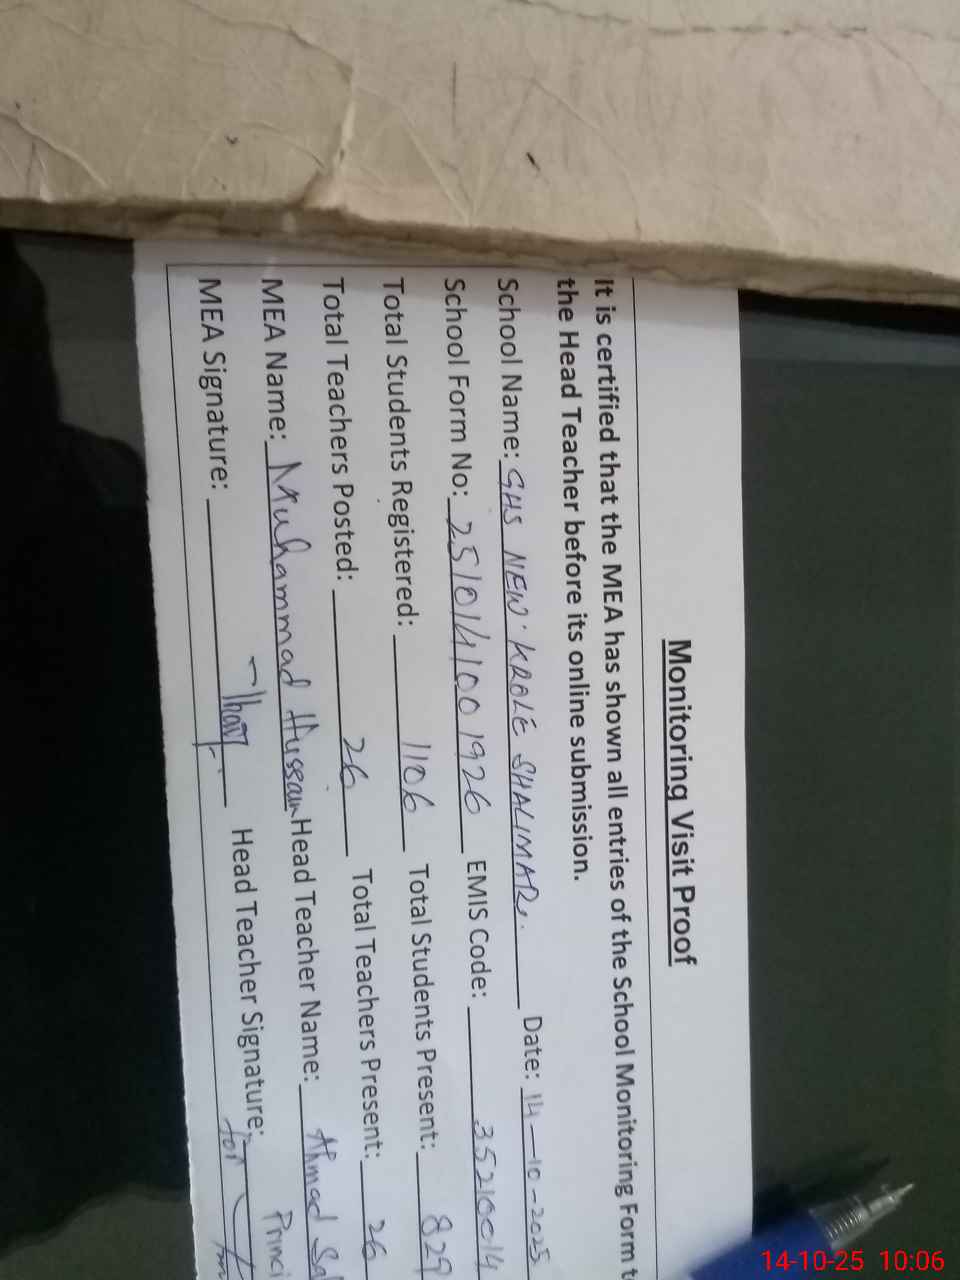 Monitoring Visit Proof
It is certified that the MEA has shown all entries of the School Monitoring Form t
the Head Teacher before its online submission.
School Name: GHS NEW KROLE SHALIMAR. Date: 14-10-2025
School Form No: 2510141001926 EMIS Code: 35210014
Total Students Registered: 1106 Total Students Present: 829
Total Teachers Posted: 26 Total Teachers Present: 26
MEA Name: Muhammad Hussain Head Teacher Name: Ahmad Sal
Princi
MEA Signature: Head Teacher Signature: for
14-10-25 10:06